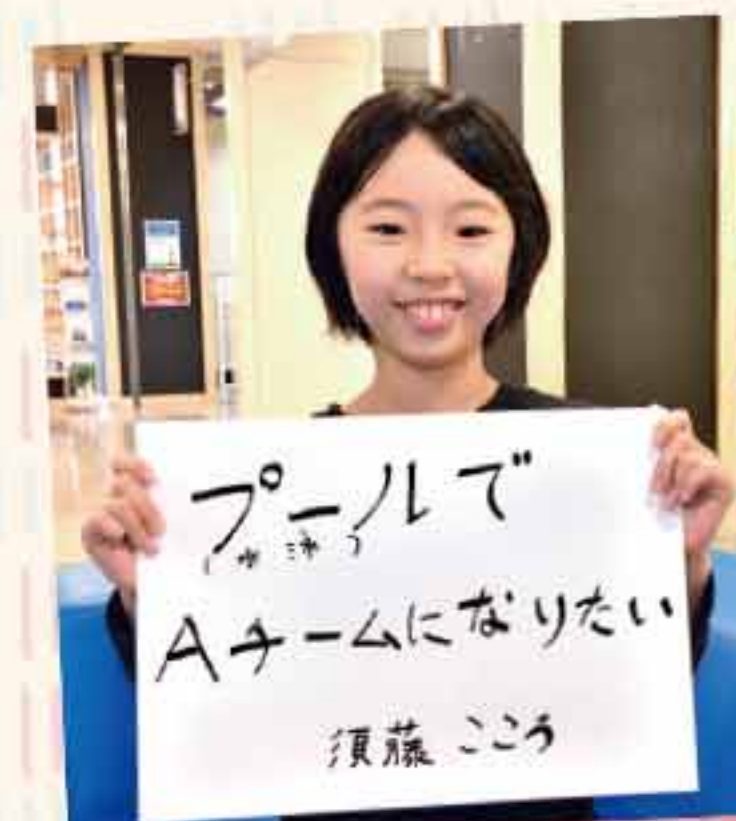 プールで
(水泳)
Aチームになりたい
須藤 ここう